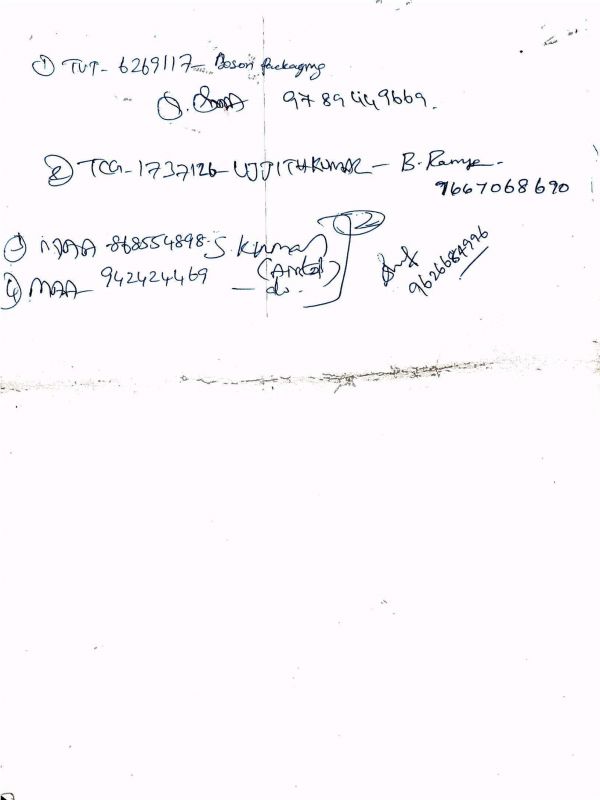 ① TUT- 6269117- Boson Packaging
9789449669.
② TCG-1737126-UJJITHKUMAR - B. Ramya-
9667068690
③ MAA-868554898- S. Kumar
(Antol)
④ MAA- 942424469 - do. 2
9626684996